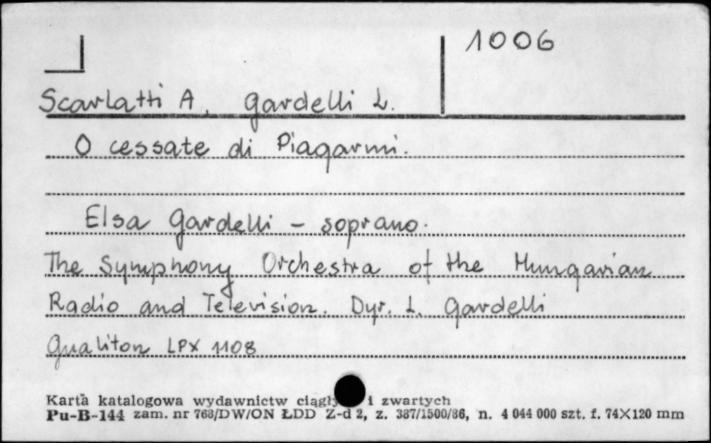 1006
Scarlatti A, Gardelli L.
O cessate di Piagarmi.
Elsa Gardelli - soprano.
The Symphony Orchestra of the Hungarian
Radio and Television. Dyr. L. Gardelli
Qualiton LPX 1108
Karta katalogowa wydawnictw i zwartych
Pu-B-144 zam. nr 768/DW/ON ŁDD Z-d 2, z. 387/1500/86, n. 4 044 000 szt. f. 74X120 mm